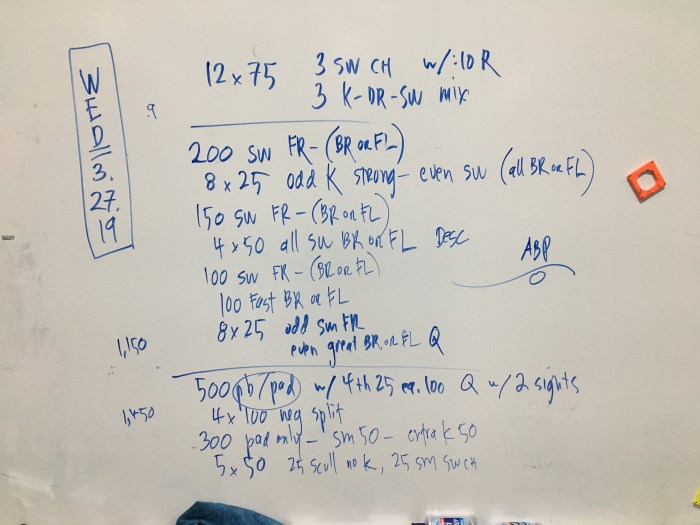 WED 3.27.19
12 x 75 3 SW CH w/:10 R
3 K-DR-SW mix
.9
200 SW FR-(BR or FL)
8 x 25 odd K strong- even sw (all BR or FL)
150 SW FR-(BR or FL)
4 x 50 all sw BR or FL DESC
ABP
100 SW FR-(BR or FL)
100 Fast BR or FL
8 x 25 odd sm FR
even great BR or FL Q
1,150
500 pb/pad w/ 4th 25 ea. 100 Q w/ 2 sights
4 x 100 neg split
1,450
300 pad only- sm 50- extra K 50
5 x 50 25 scull no K, 25 sm sw CH